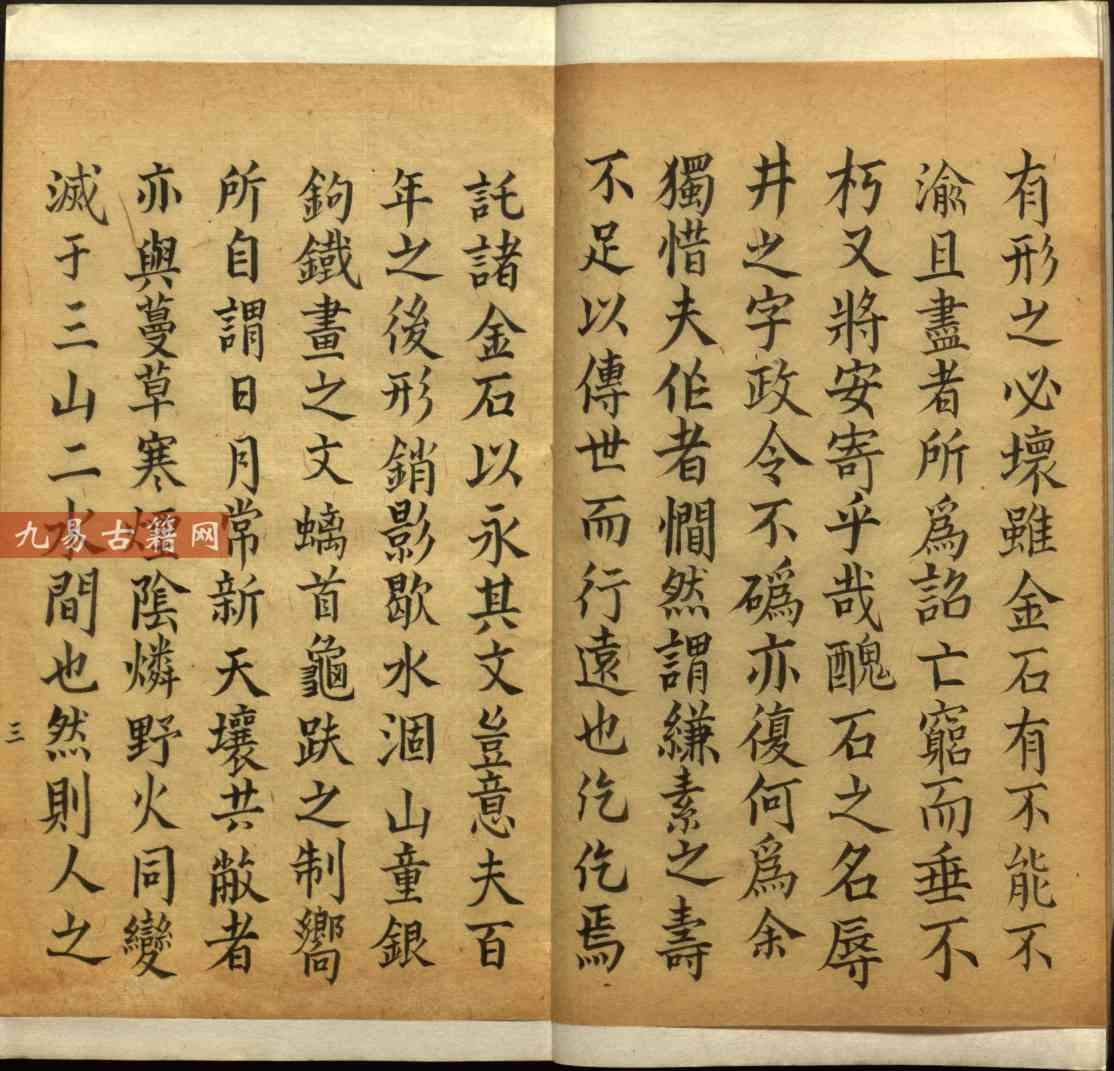 有形之必壞雖金石有不能不
渝且盡者所爲詔亡窮而垂不
朽又將安寄乎哉醜石之名辱
井之字政令不磆亦復何爲余
獨惜夫作者憪然謂縑素之壽
不足以傳世而行遠也仡仡焉
託諸金石以永其文豈意夫百
年之後形銷影歇水涸山童銀
鉤鐵畫之文螭首龜趺之制嚮
所自謂日月常新天壤共敝者
亦與蔓草寒煙陰燐野火同變
滅于三山二水間也然則人之
三
九易古籍网